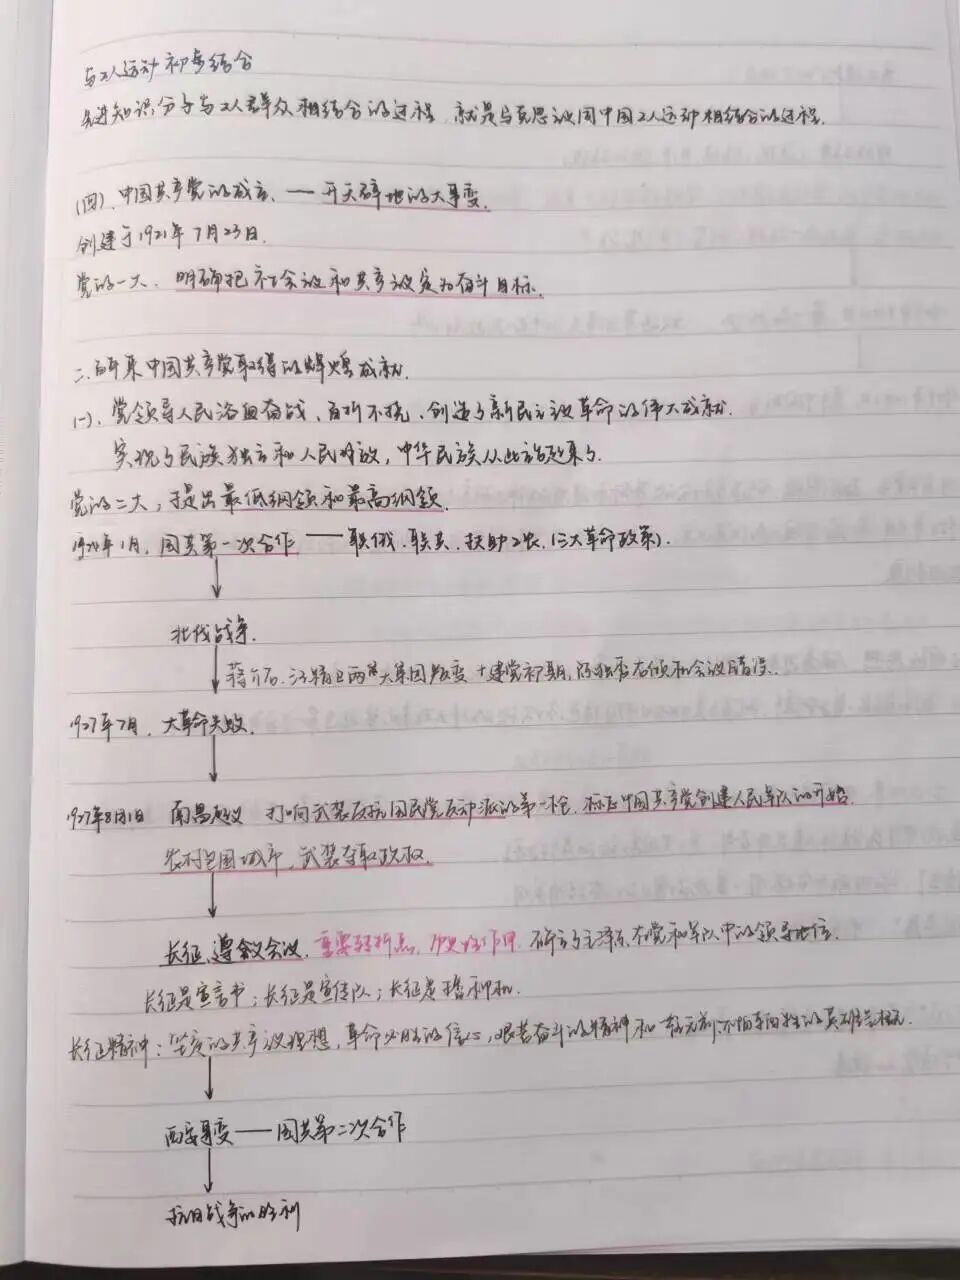 与工人运动初步结合
先进知识分子与工人群众相结合的过程，就是马克思议同中国工人运动相结合的过程.
(四)、中国共产党的成立、—— 开天辟地的大事变.
创建于1921年7月23日.
党的一大、明确把社会议和共产议定为奋斗目标.
二.百年来中国共产党取得的辉煌成就.
(一)、党领导人民浴血奋战、百折不挠，创造了新民主议革命的伟大成就.
实现了民族独立和人民解放，中华民族从此站起来了.
党的二大，提出最低纲领和最高纲领.
1924年1月，国共第一次合作 —— 联俄、联共、扶助工农.(三大革命政策).
北伐战争.
蒋介石.汪精卫两大集团叛变 + 建党初期，陈独秀右倾机会议错误.
1927年7月、大革命失败.
1927年8月1日 南昌起义 打响武装反抗国民党反动派的第一枪. 标志中国共产党创建人民军队的开始.
农村包围城市、武装夺取政权.
长征、遵义会议、重要转折点，历史性作用 确立了毛泽东在党和军队中的领导地位.
长征是宣言书；长征是宣传队；长征是播种机.
长征精神：坚定的共产议理想，革命必胜的信心，艰苦奋斗的精神和一往无前、不怕牺牲的英雄气概.
西安事变 —— 国共第二次合作
抗日战争的胜利